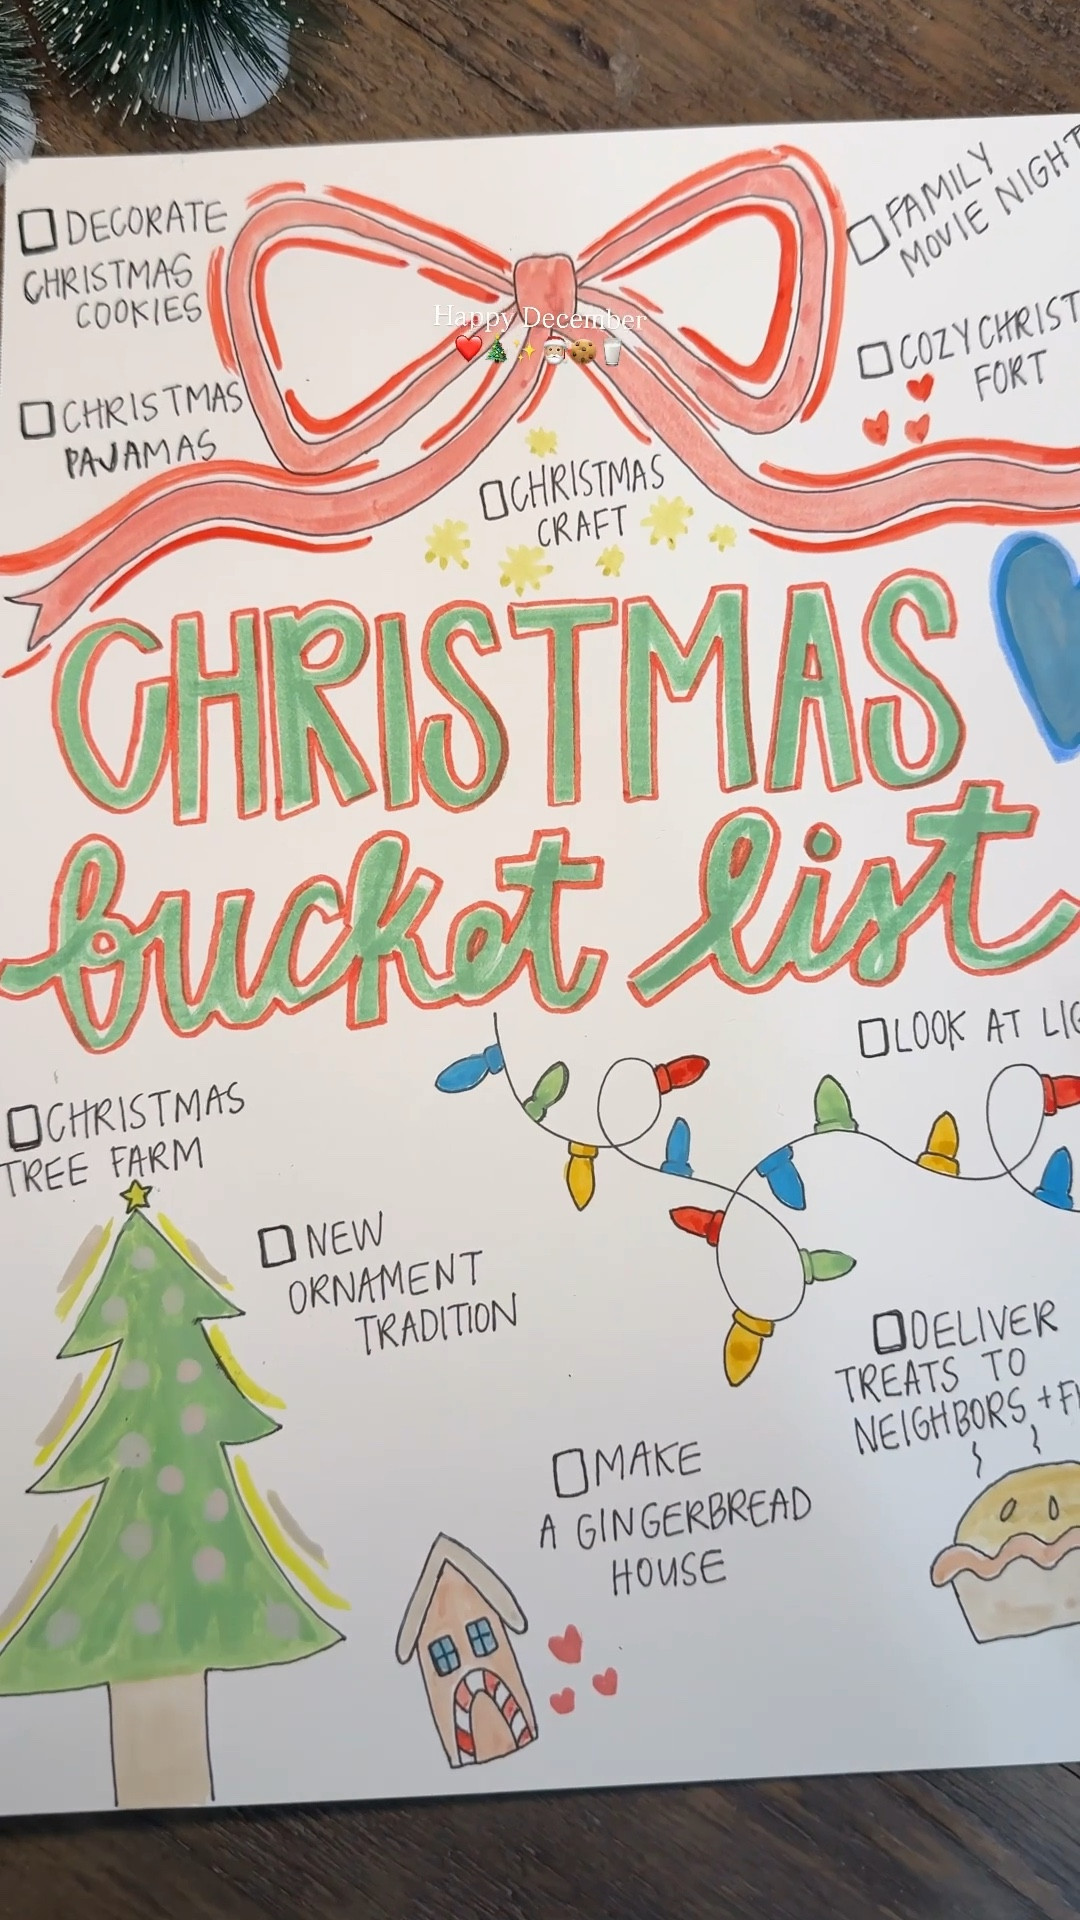 DECORATE
CHRISTMAS
COOKIES
FAMILY
MOVIE NIGHT
Happy December
COZY CHRIST
FORT
CHRISTMAS
PAJAMAS
CHRISTMAS
CRAFT
CHRISTMAS
bucket list
LOOK AT LIG
CHRISTMAS
TREE FARM
NEW
ORNAMENT
TRADITION
DELIVER
TREATS TO
NEIGHBORS + F
MAKE
A GINGERBREAD
HOUSE